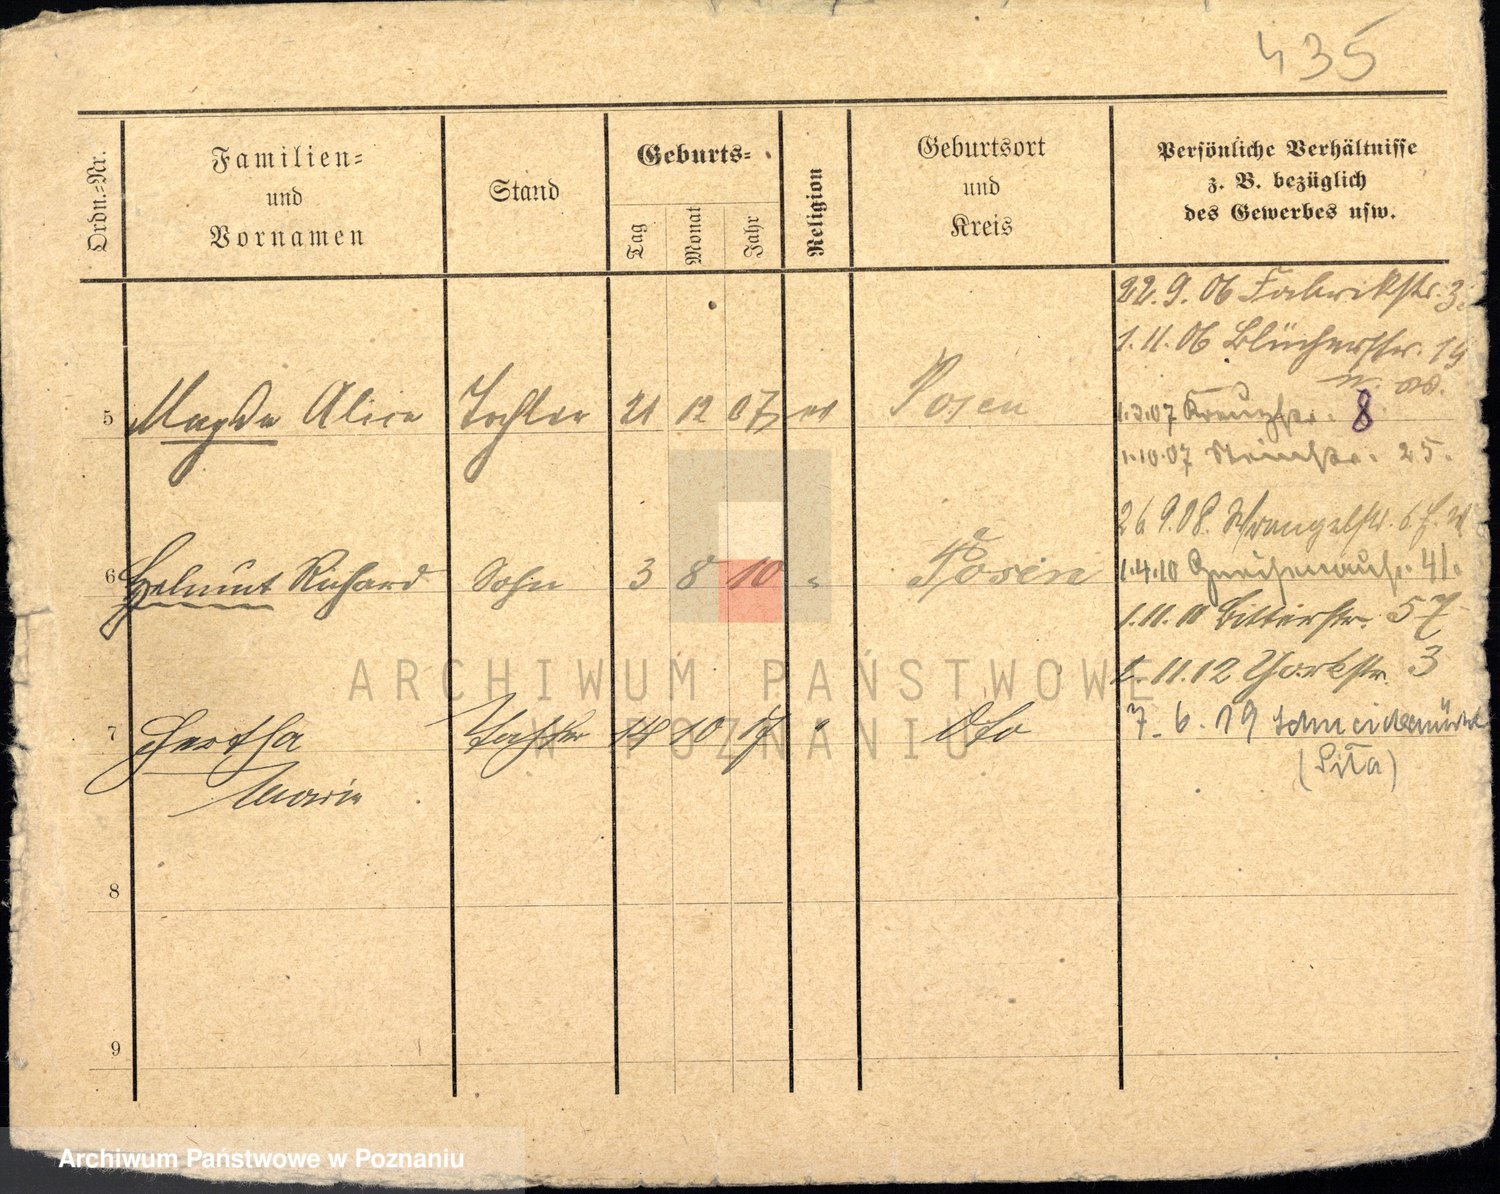 435
Ordn.-Nr.
Familien-
und
Vornamen
Stand
Geburts-
Tag
Monat
Jahr
Religion
Geburtsort
und
Kreis
Persönliche Verhältnisse
z. B. bezüglich
des Gewerbes usw.
22.9.06 Fabrikstr. 3
1.11.06 Blücherstr. 19
5 Magda Alice Tochter 21 12 07 Posen
1.3.07 Kreuzstr. 8
1.10.07 Steinstr. 25.
26 9.08. Wrangelstr. 6
6 Helmut Richard Sohn 3 8 10 " Posen
1.4.10 Gneisenaustr. 41.
1.11.11 Bitterstr. 57
1.11.12 Yorkstr. 3
7 Hertha Tochter 14 10 17 " Dto
Marie
7.6.19 Schneidemühl
(Piła)
8
9
ARCHIWUM PAŃSTWOWE
W POZNANIU
Archiwum Państwowe w Poznaniu